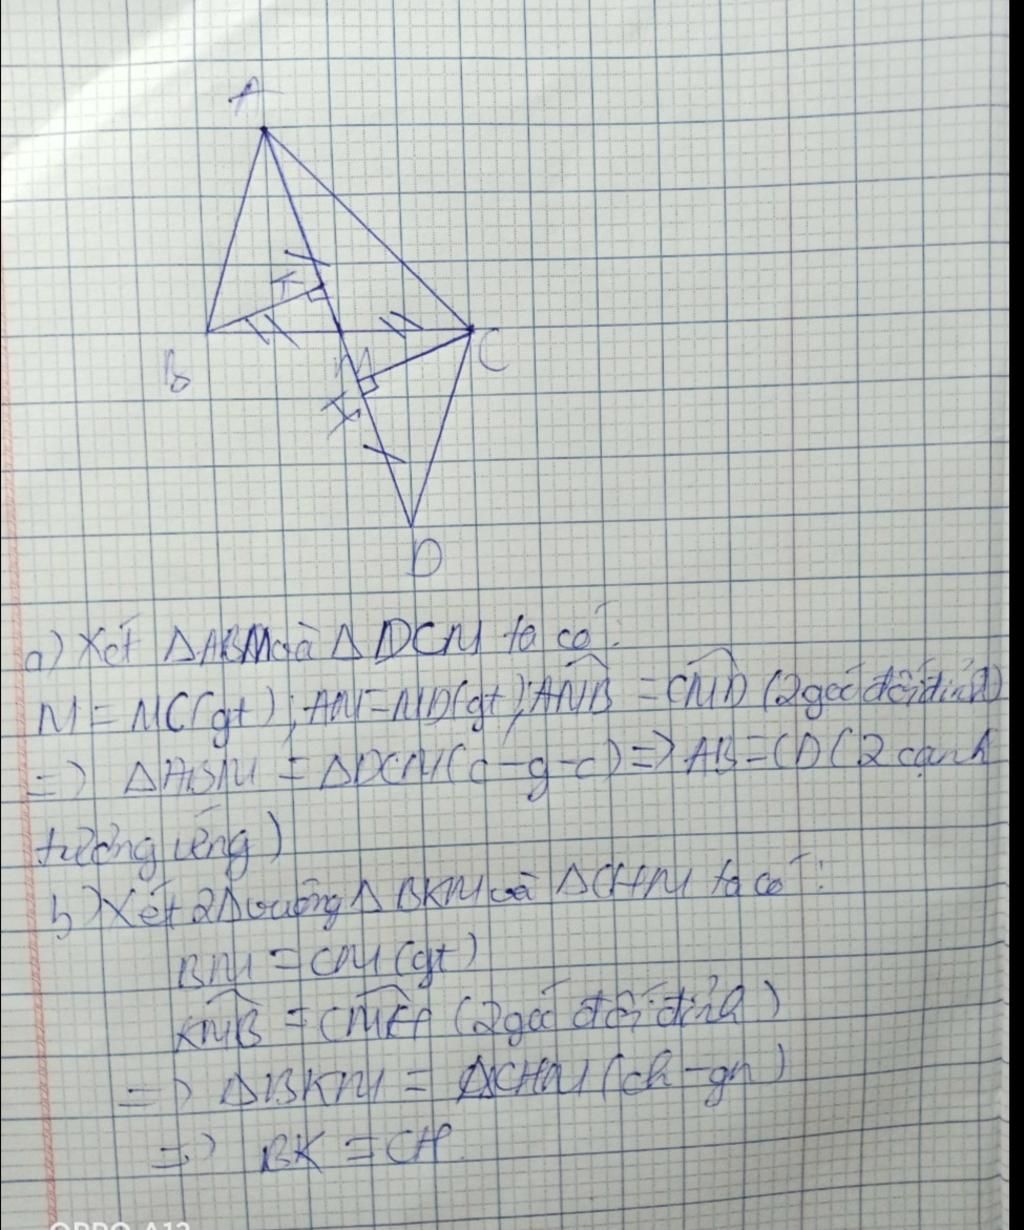 A
B
M
C
D
a) Xét ΔABM và ΔDCM ta có:
M = MC(gt); AM=MD(gt); AMB = CMD (2 góc đối đỉnh)
=> ΔABM = ΔDCM (c-g-c) => AB=CD (2 cạnh
tương ứng)
b) Xét 2Δ vuông ΔBKM và ΔCHM ta có:
BM = CM (gt)
KMB = CMH (2 góc đối đỉnh)
=> ΔBKM = ΔCHM (ch-gn)
=> BK = CH.
OPPO A12